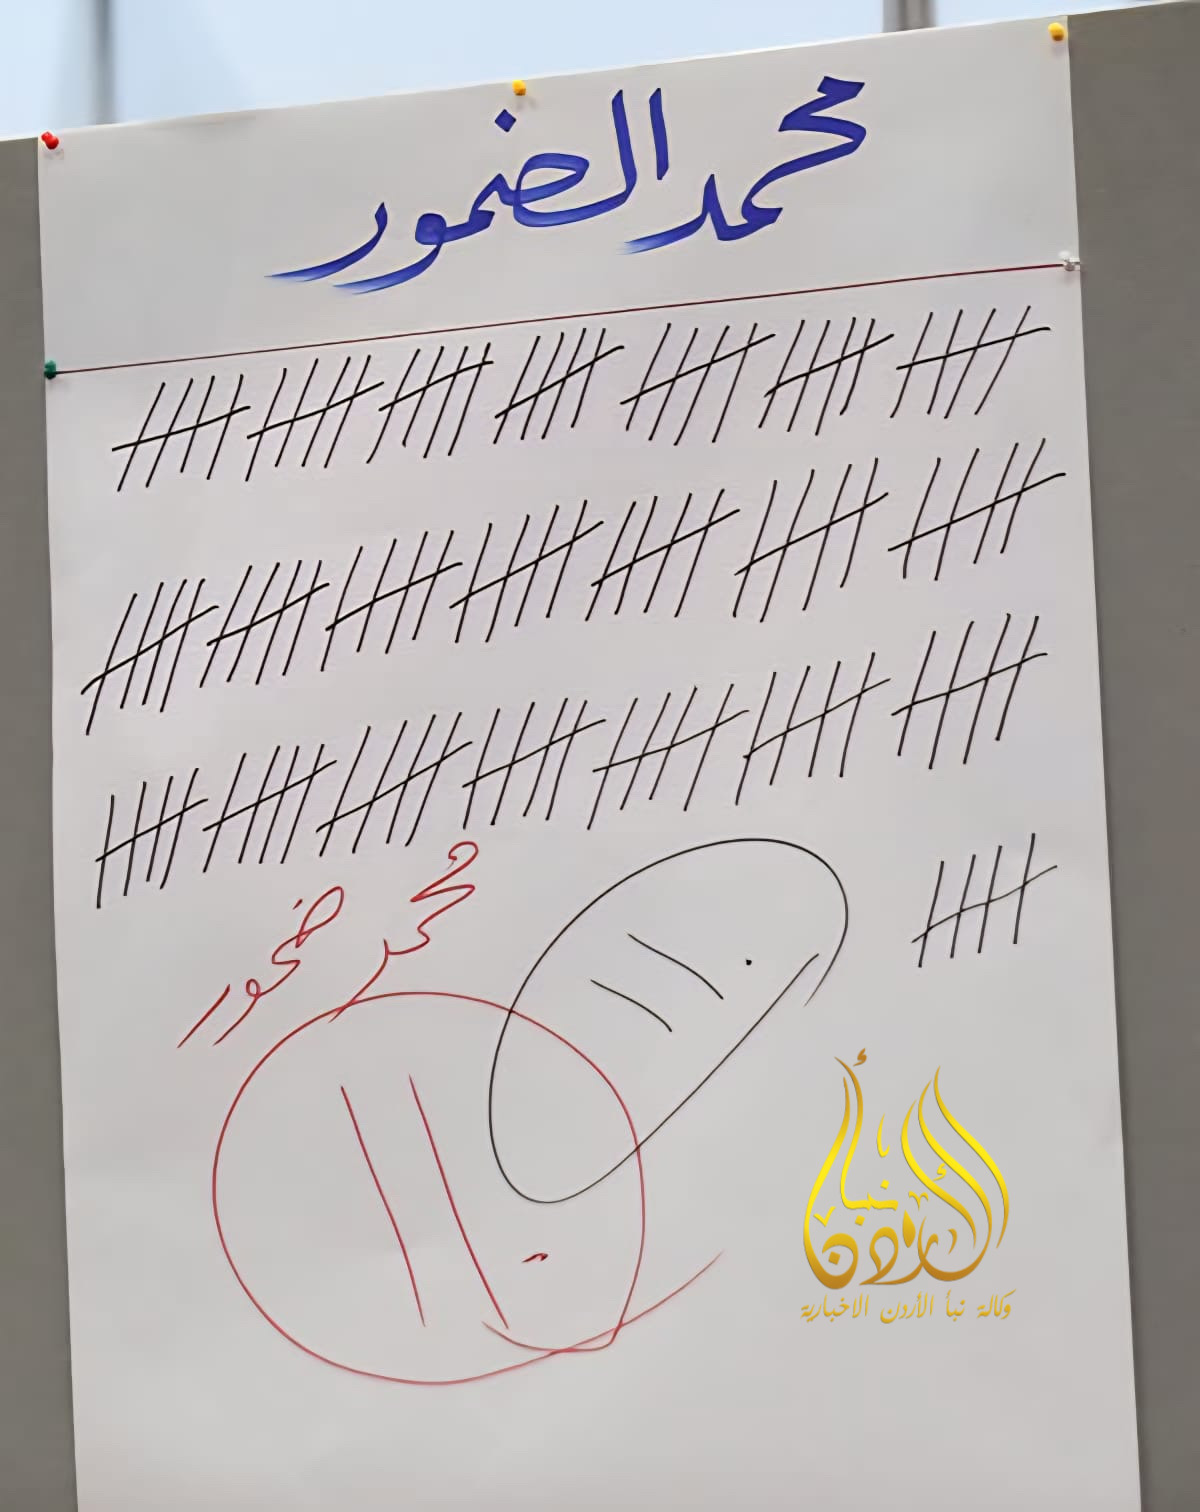 محمد الضمور
محمد ضمور
١١٠
١١٠
نبأ الأردن
وكالة نبأ الأردن الاخبارية